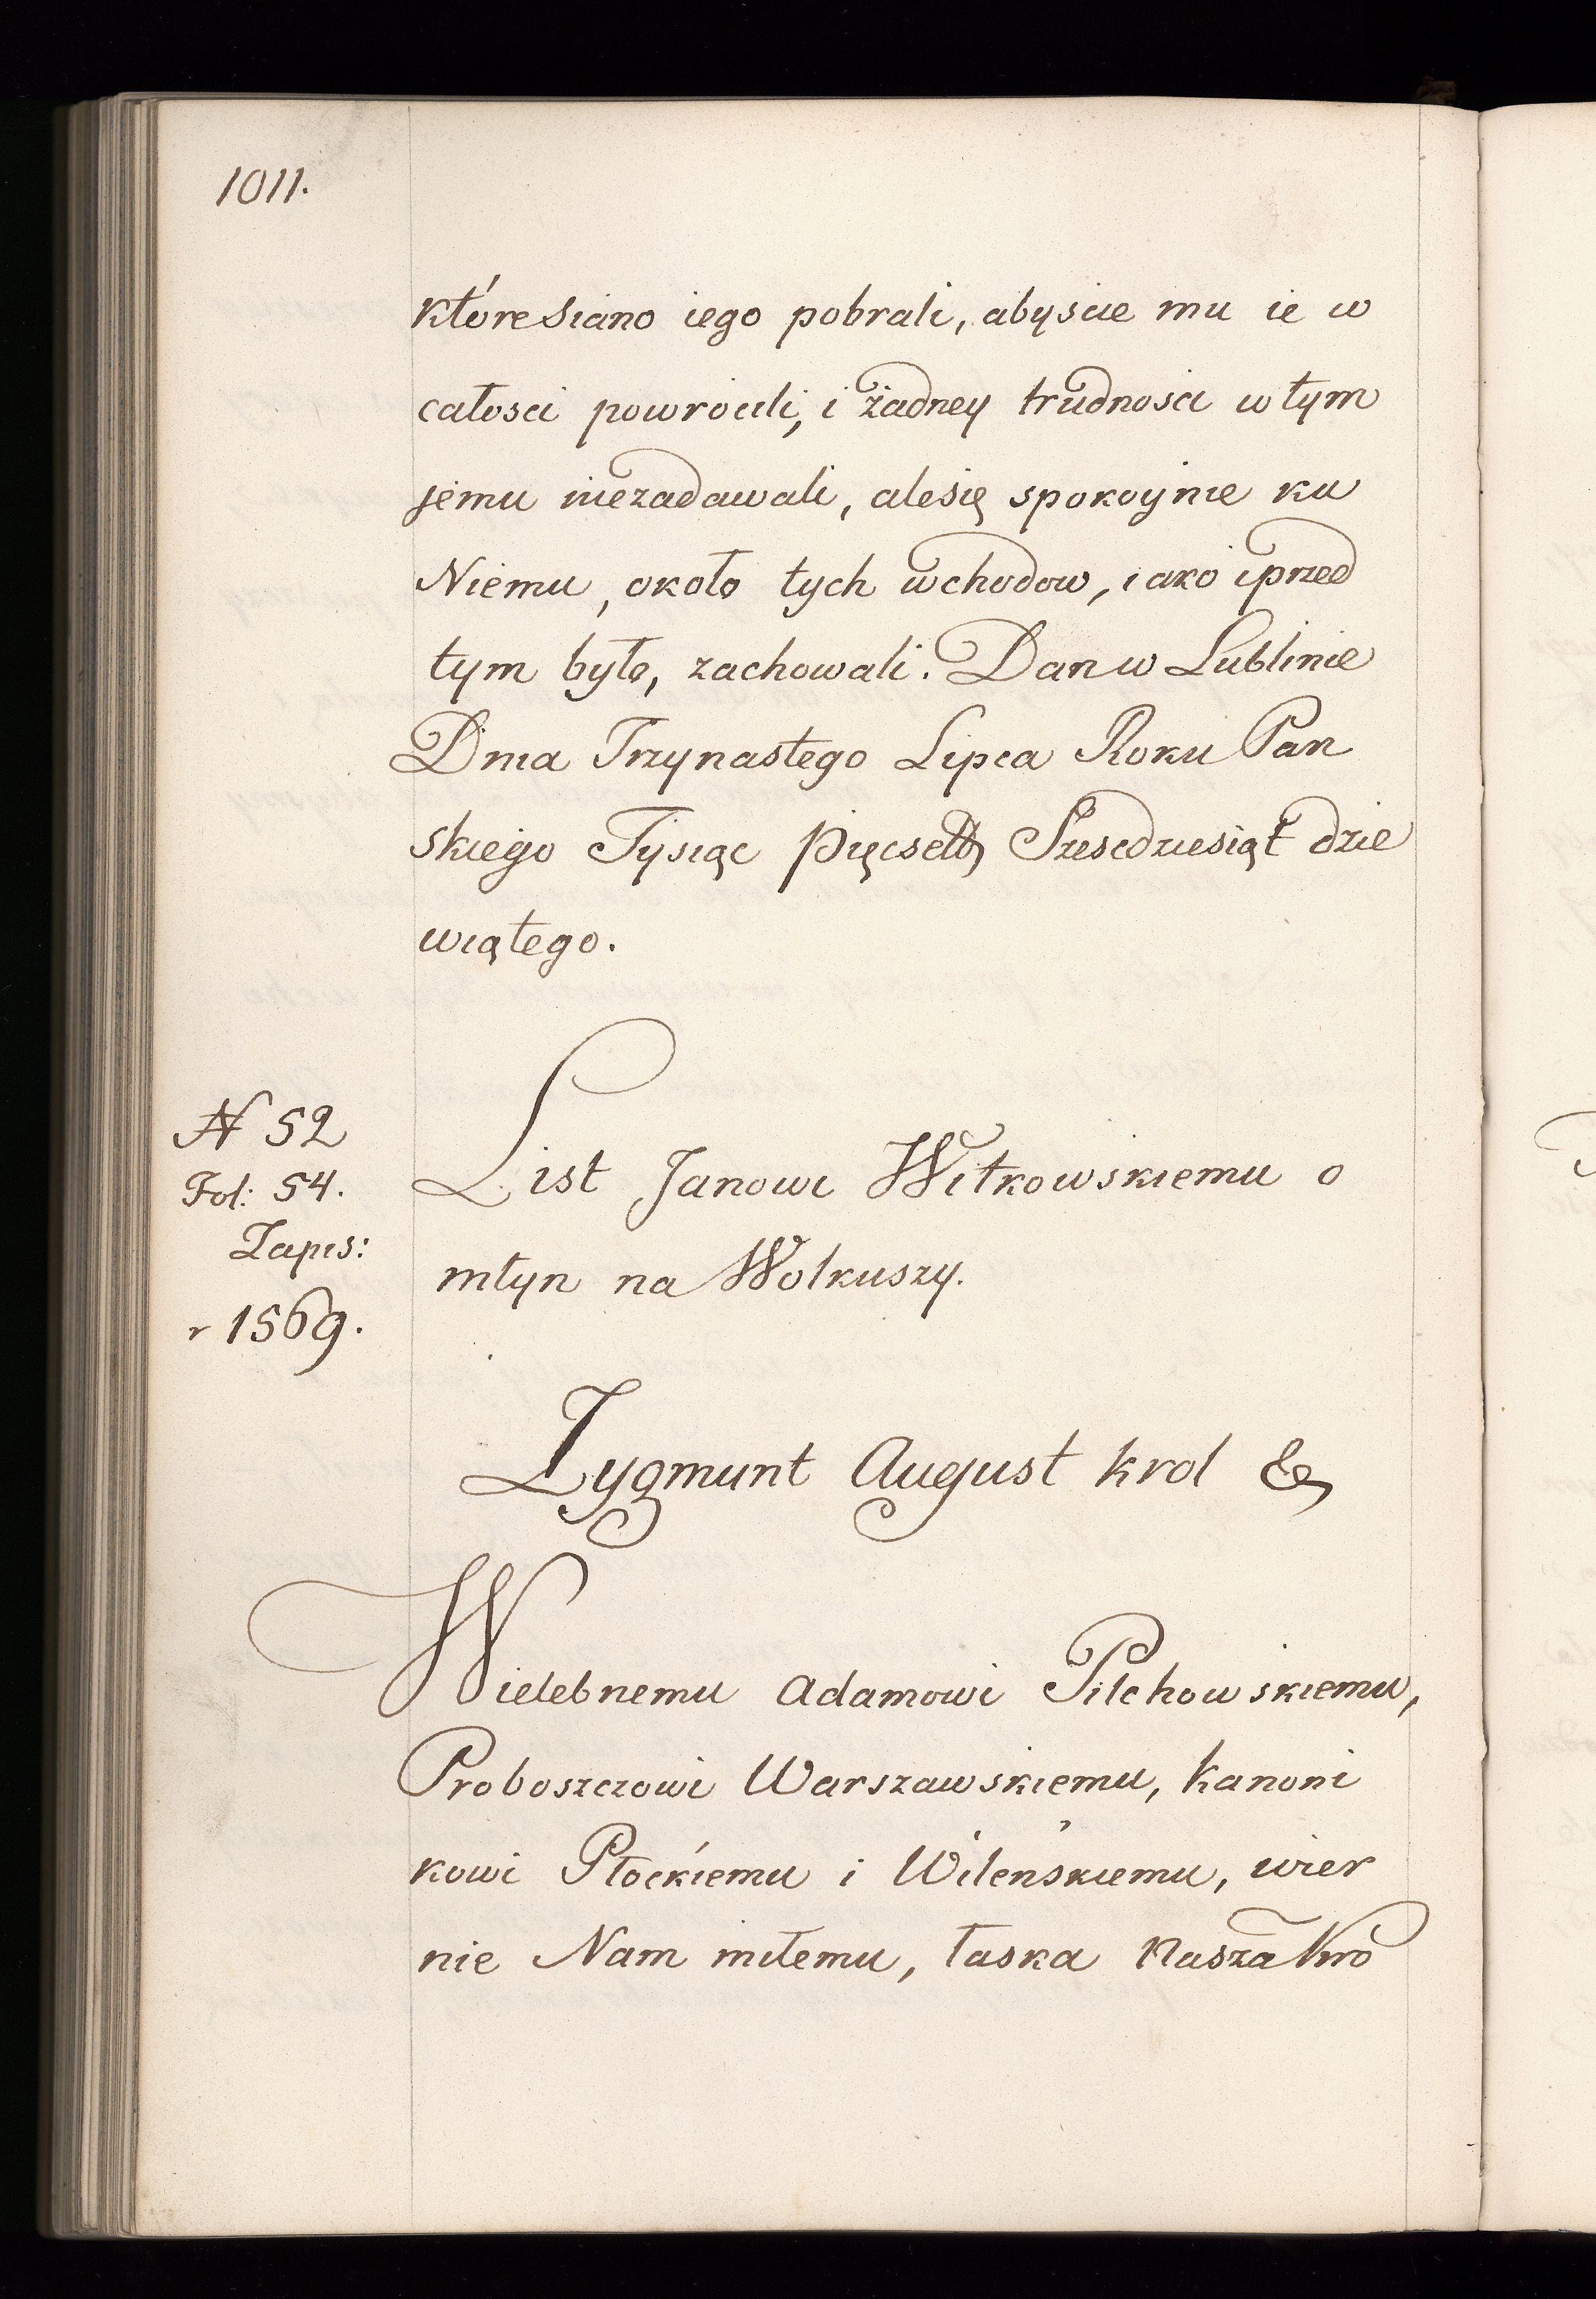 1011.
które Siano iego pobrali, abyscie mu ie w
całosci powrócili, i żadney trudnosci w tym
jemu niezadawali, alesię spokoynie ku
Niemu, około tych wchodow, iako iprzed
tym było, zachowali. Dan w Lublinie
Dnia Trzynastego Lipca Roku Pan
skiego Tysiąc Pięcset Szescdziesiąt dzie
wiątego.
N 52
Fol: 54.
Zapis:
r 1569.
List Janowi Witkowskiemu o
młyn na Wolkuszy.
Zygmunt August krol &
Wielebnemu Adamowi Pilchowskiemu,
Proboszczowi Warszawskiemu, kanoni
kowi Płockiemu i Wileńskiemu, wier
nie Nam miłemu, łaska Nasza Kró